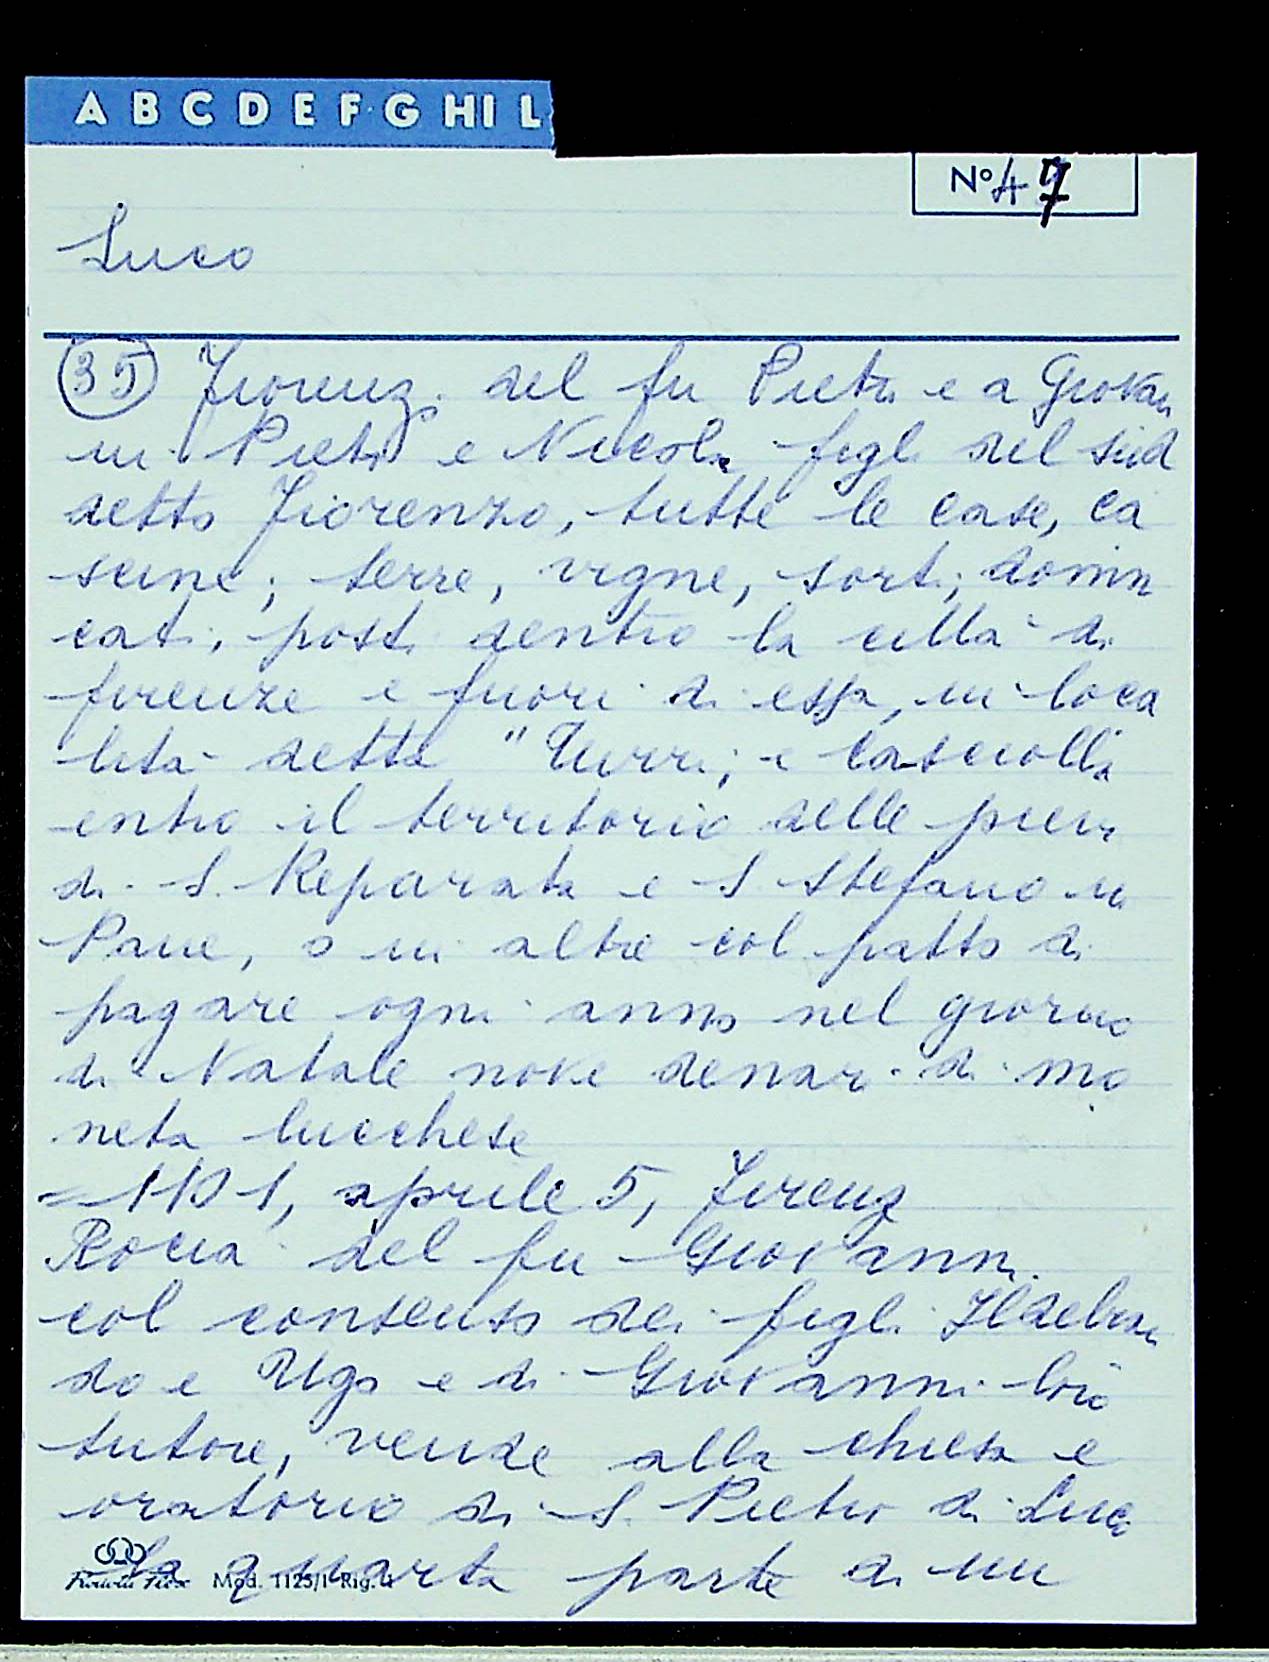 A B C D E F G H I L
N° 47
Luco
35 Fiorenz. del fu Pietro e a Giovan
ni Pietro e Nicola figli del sud
detto Fiorenzo, tutte le case, ca
scine, terre, vigne, sorti, domin
cati, posti dentro la città di
firenze e fuori di essa, in loca
lità detta "Turri, e Casciolla
entro il territorio delle pievi
di S. Reparata e S Stefano in
Pane, o in altre col patto di
pagare ogni anno nel giorno
di Natale nove denari di mo
neta lucchese
= 1101, aprile 5, Firenz
Rocia del fu Giovanni
col consenso dei figli Ildebran
do e Ugo e di Giovanni loro
tutore, vende alla chiesa e
oratorio di S. Pietro di Luco
la quarta parte di un
Mod. 1125/1 Rig. 4